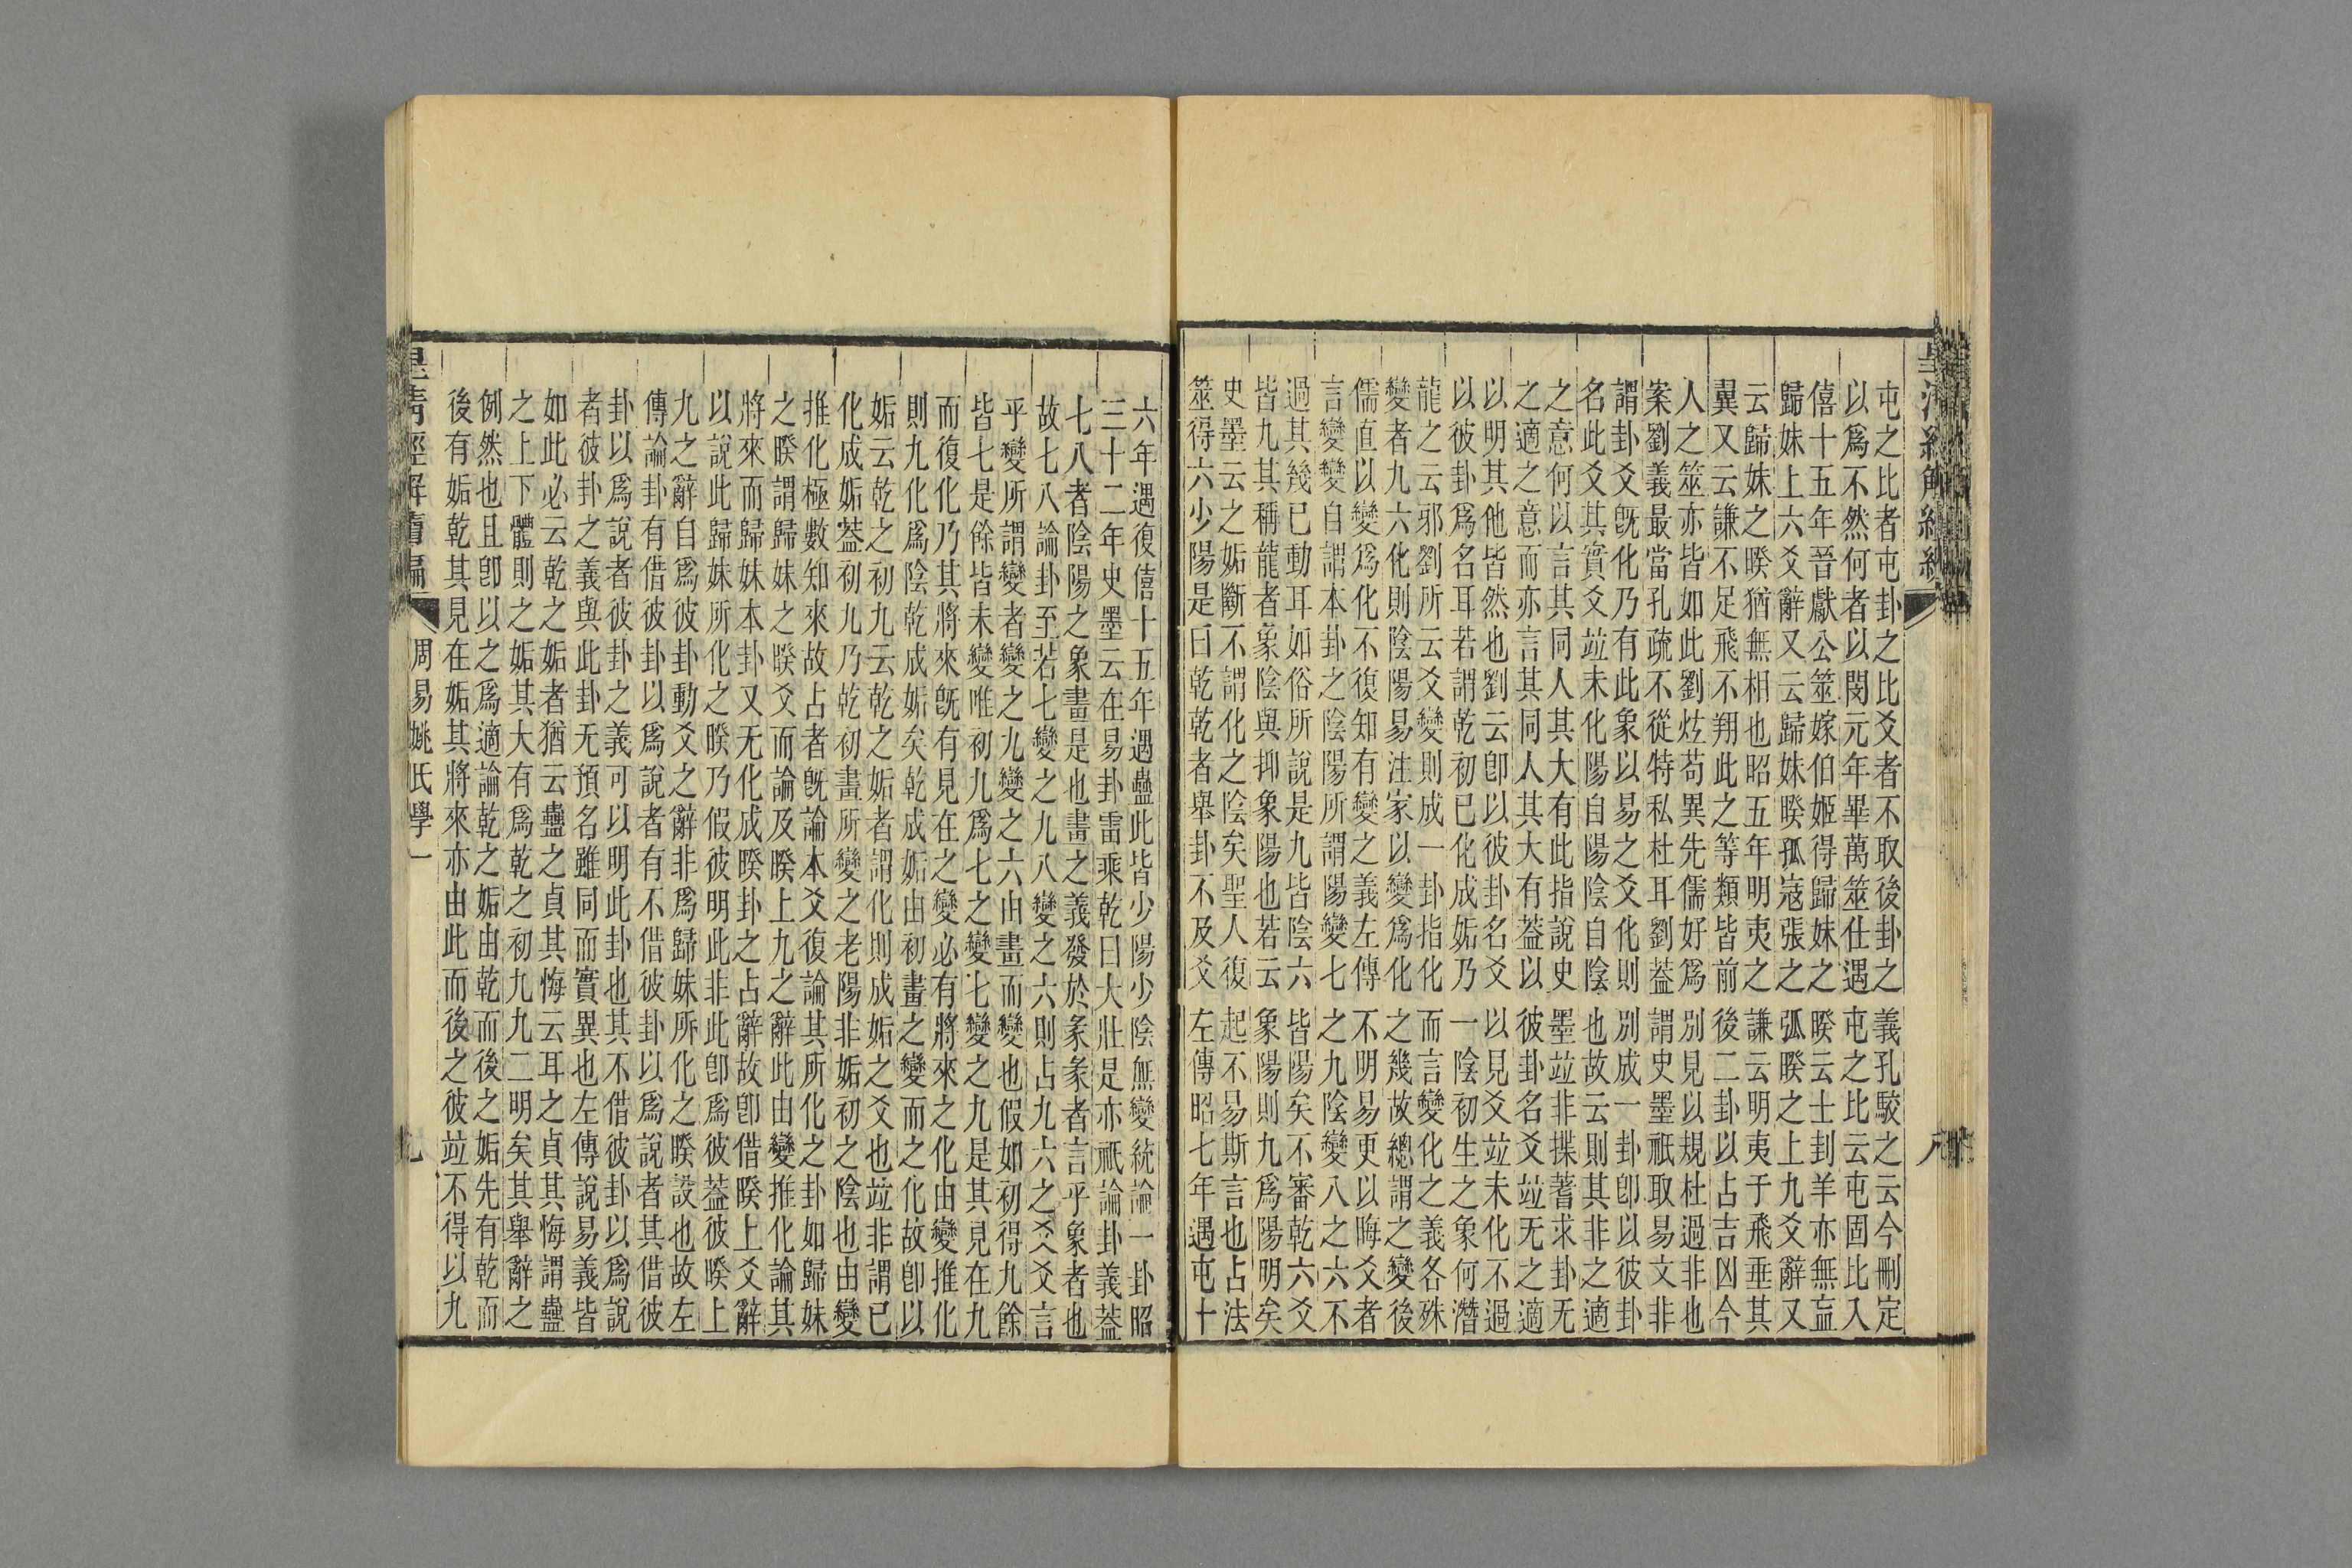 皇清經解續編
八
屯之比者屯卦之比爻者不取後卦之義孔駮之云今刪定
以爲不然何者以閔元年畢萬筮仕遇屯之比云屯固比入
僖十五年晉獻公筮嫁伯姬得歸妹之暌云士刲羊亦無衁
歸妹上六爻辭又云歸妹暌孤寇張之弧暌之上九爻辭又
云歸妹之暌猶無相也昭五年明夷之謙云明夷于飛垂其
翼又云謙不足飛不翔此之等類皆前後二卦以占吉凶今
人之筮亦皆如此劉炫苟異先儒好爲別見以規杜過非也
案劉義最當孔疏不從特私杜耳劉葢謂史墨祇取易文非
謂卦爻旣化乃有此象以易之爻化則別成一卦卽以彼卦
名此爻其實爻竝未化陽自陽陰自陰也故云則其非之適
之意何以言其同人其大有此指說史墨竝非揲蓍求卦无
之適之意而亦言其同人其大有葢以彼卦名爻竝无之適
以明其他皆然也劉云卽以彼卦名爻以見爻竝未化不過
以彼卦爲名耳若謂乾初已化成姤乃一陰初生之象何潛
龍之云邪劉所云爻變則成一卦指化而言變化之義各殊
變者九六化則陰陽易注家以變爲化之幾故總謂之變後
儒直以變爲化不復知有變之義左傳不明易更以晦爻者
言變變自謂本卦之陰陽所謂陽變七之九陰變八之六不
過其幾已動耳如俗所說是九皆陰六皆陽矣不審乾六爻
皆九其稱龍者象陰與抑象陽也若云象陽則九爲陽明矣
史墨云之姤斷不謂化之陰矣聖人復起不易斯言也占法
筮得六少陽是曰乾乾者舉卦不及爻左傳昭七年遇屯十
六年遇復僖十五年遇蠱此皆少陽少陰無變統論一卦昭
三十二年史墨云在易卦雷乘乾曰大壯是亦祇論卦義葢
七八者陰陽之象畫是也畫之義發於彖彖者言乎象者也
故七八論卦至若七變之九八變之六則占九六之爻爻言
乎變所謂變者變之九變之六由畫而變也假如初得九餘
皆七是餘皆未變唯初九爲七之變七變之九是其見在九
而復化乃其將來旣有見在之變必有將來之化由變推化
則九化爲陰乾成姤矣乾成姤由初畫之變而之化故卽以
姤云乾之初九云乾之姤者謂化則成姤之爻也竝非謂已
化成姤葢初九乃乾初畫所變之老陽非姤初之陰也由變
推化極數知來故占者旣論本爻復論其所化之卦如歸妹
之暌謂歸妹之暌爻而論及暌上九之辭此由變推化論其
將來而歸妹本卦又无化成暌卦之占辭故卽借暌上爻辭
以說此歸妹所化之暌乃假彼明此非此卽爲彼葢彼暌上
九之辭自爲彼卦動爻之辭非爲歸妹所化之暌設也故左
傳論卦有借彼卦以爲說者有不借彼卦以爲說者其借彼
卦以爲說者彼卦之義可以明此卦也其不借彼卦以爲說
者彼卦之義與此卦无預名雖同而實異也左傳說易義皆
如此必云乾之姤者猶云蠱之貞其悔云耳之貞其悔謂蠱
之上下體則之姤其大有爲乾之初九九二明矣其舉辭之
例然也且卽以之爲適論乾之姤由乾而後之姤先有乾而
後有姤乾其見在姤其將來亦由此而後之彼竝不得以九
皇清經解續編
周易姚氏學一
九